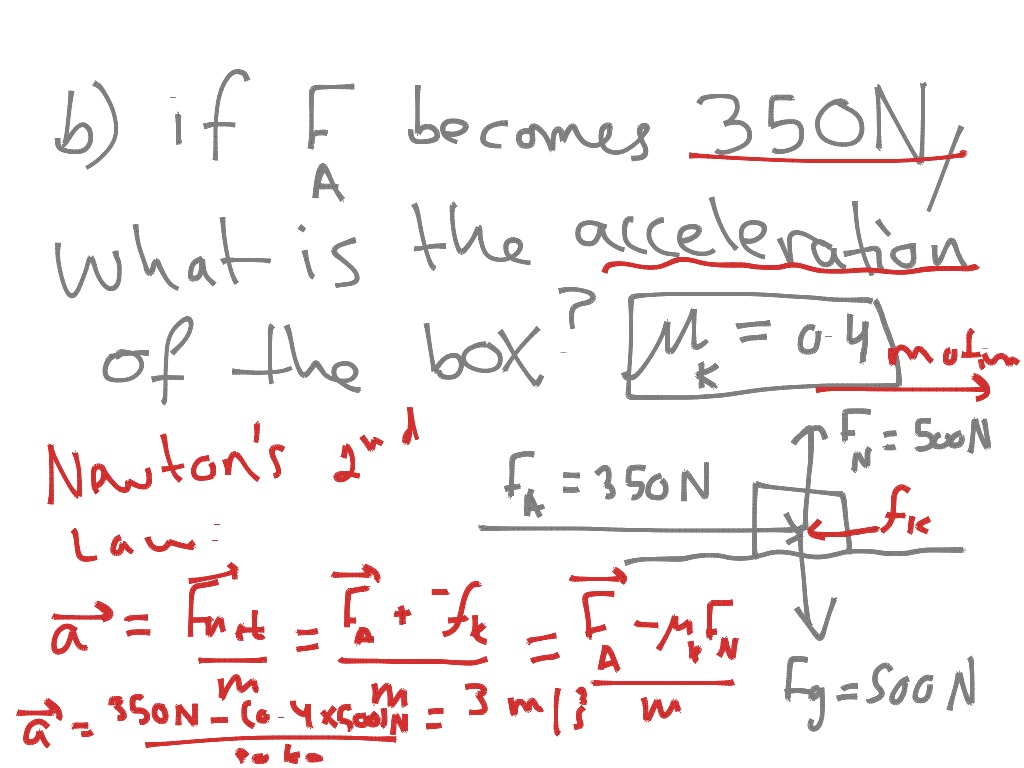 b) if F_A becomes 350N,
what is the acceleration
of the box? μ_K = 0.4
motion
Newton's 2nd
Law:
F_A = 350N
F_N = 500N
f_k
a = F_net/m = (F_A + -f_k)/m = (F_A - μ_k F_N)/m
Fg = 500N
a = 350N - (0.4 x 500)N = 3 m/s